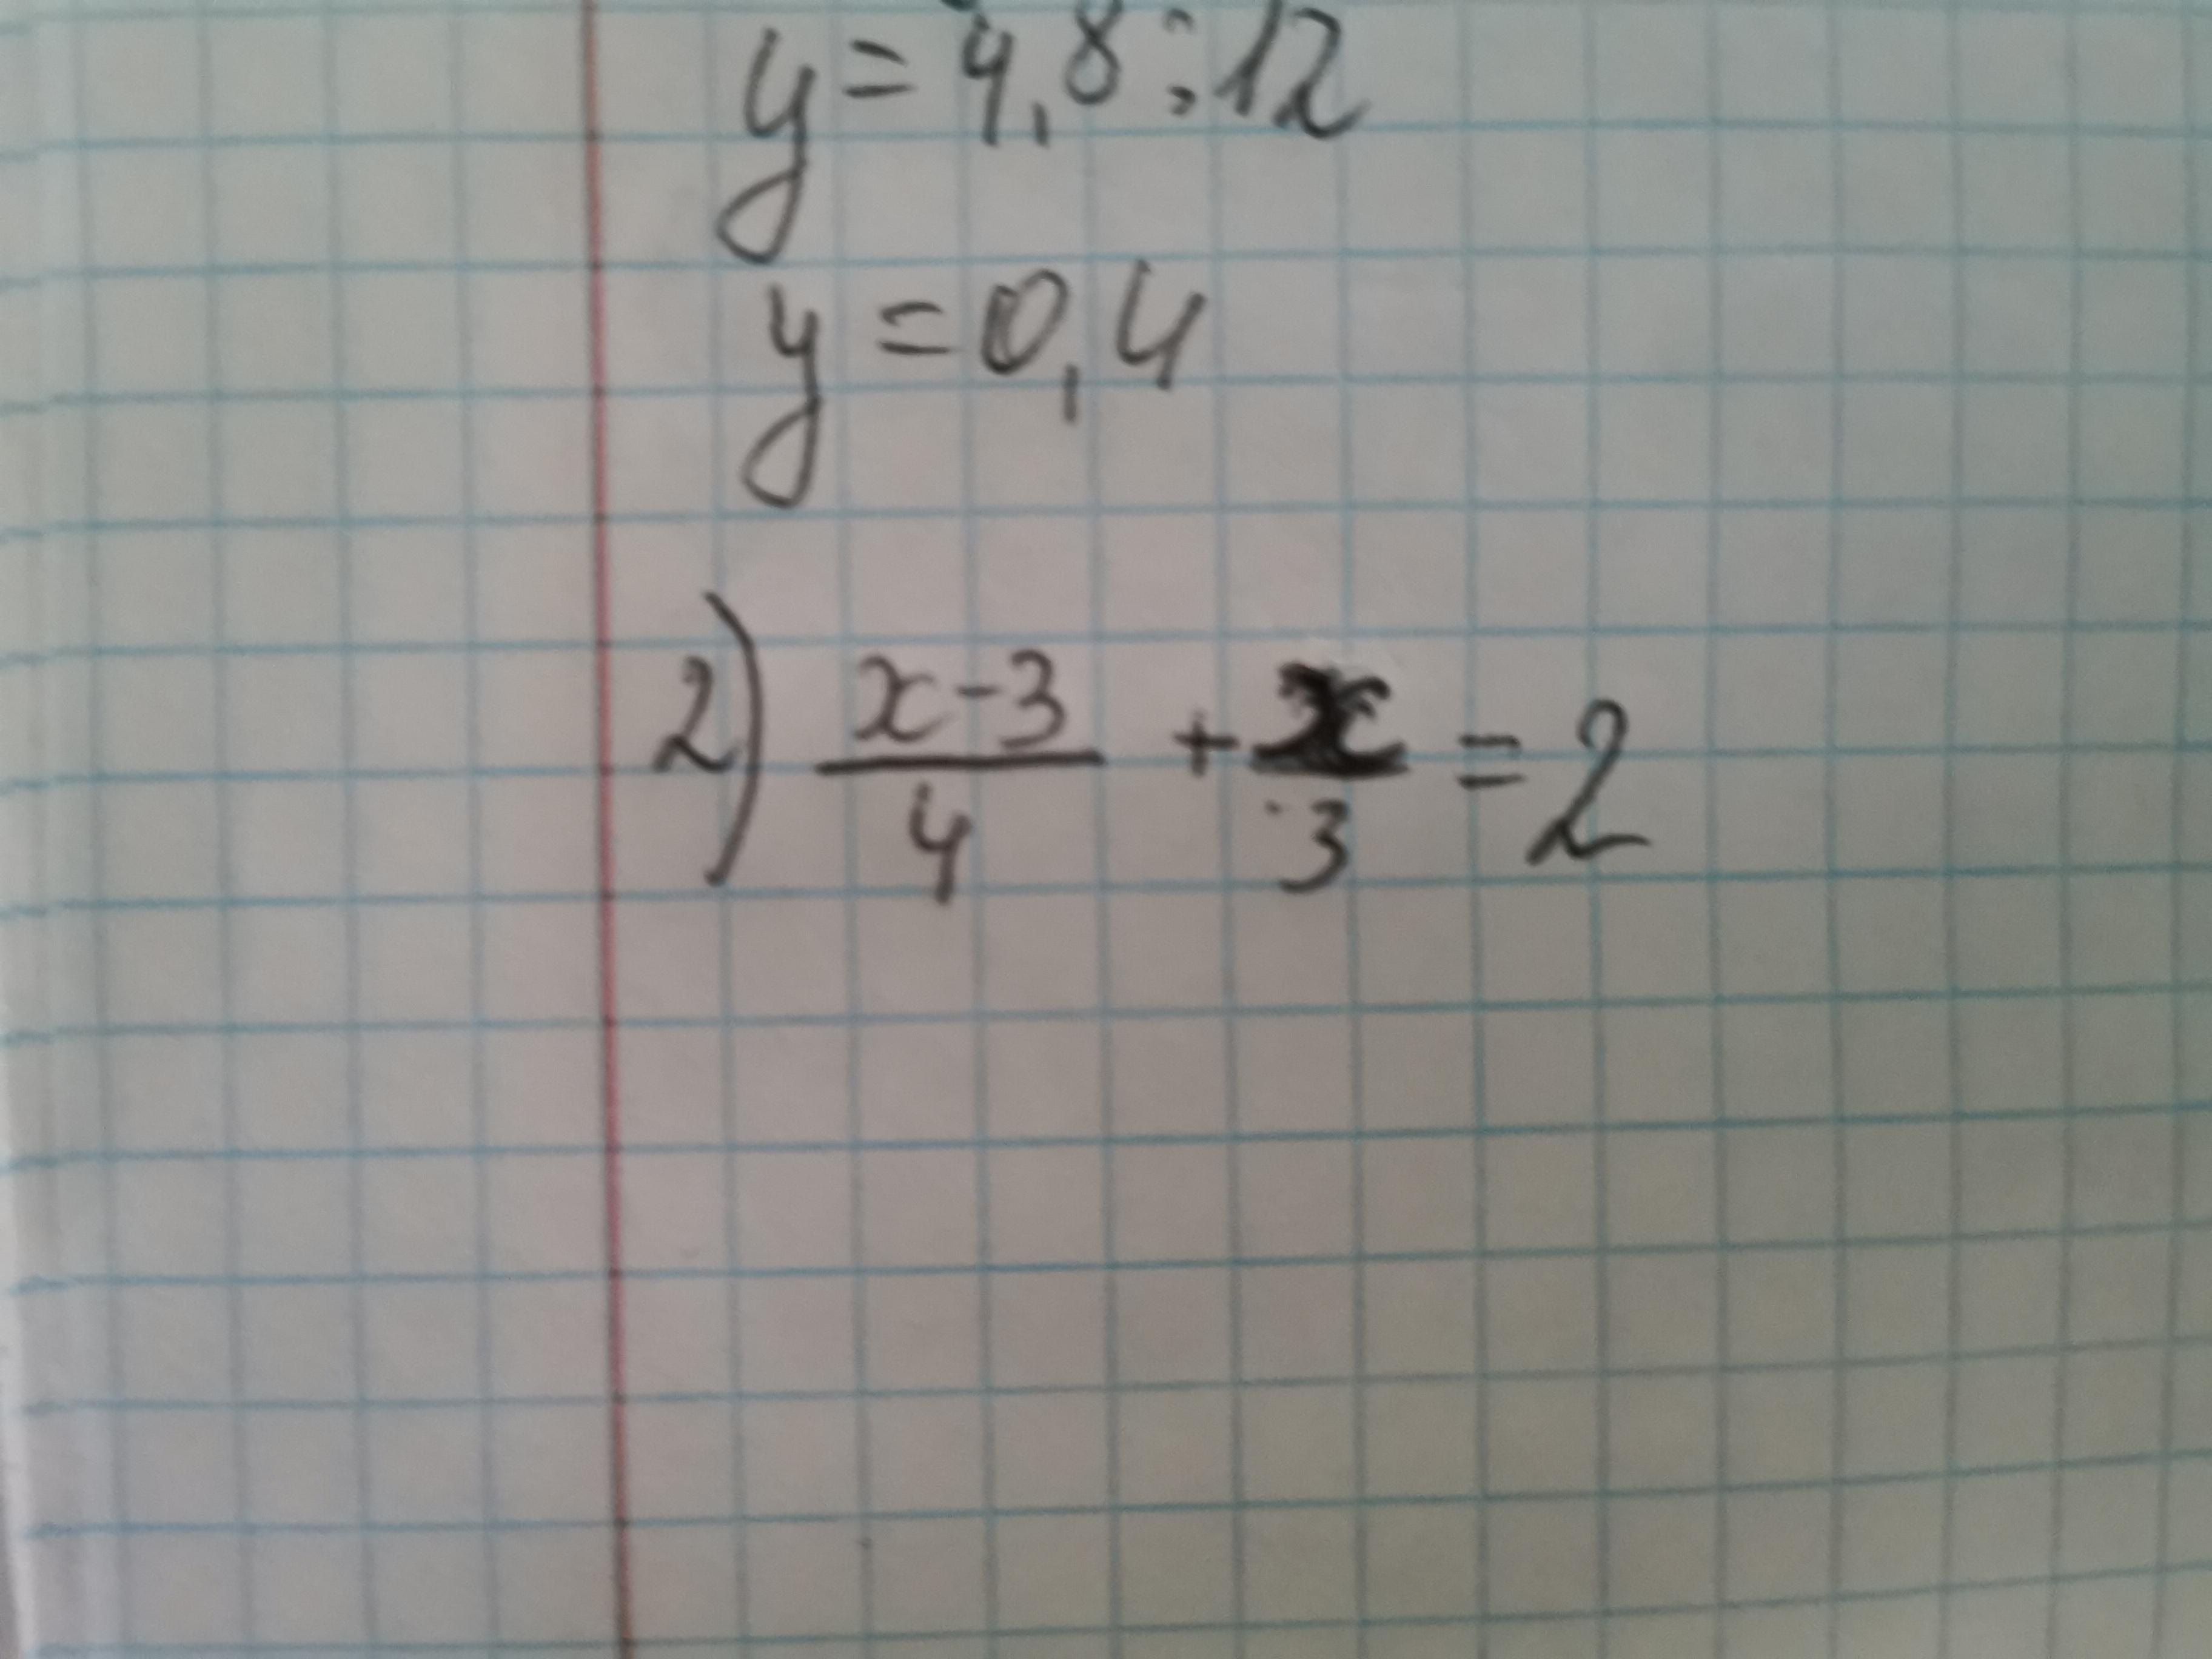 y = 4,8 : 12
y = 0,4
2) (x-3)/4 + x/3 = 2